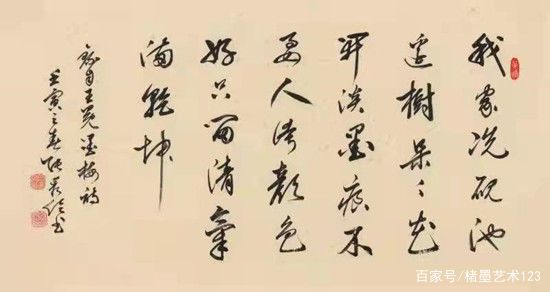 我家洗砚池
边樹朵々花
开淡墨痕不
要人誇颜色
好只留清氣
满乾坤
录自王冕墨梅诗
壬寅之春张书
百家号/楮墨艺术123